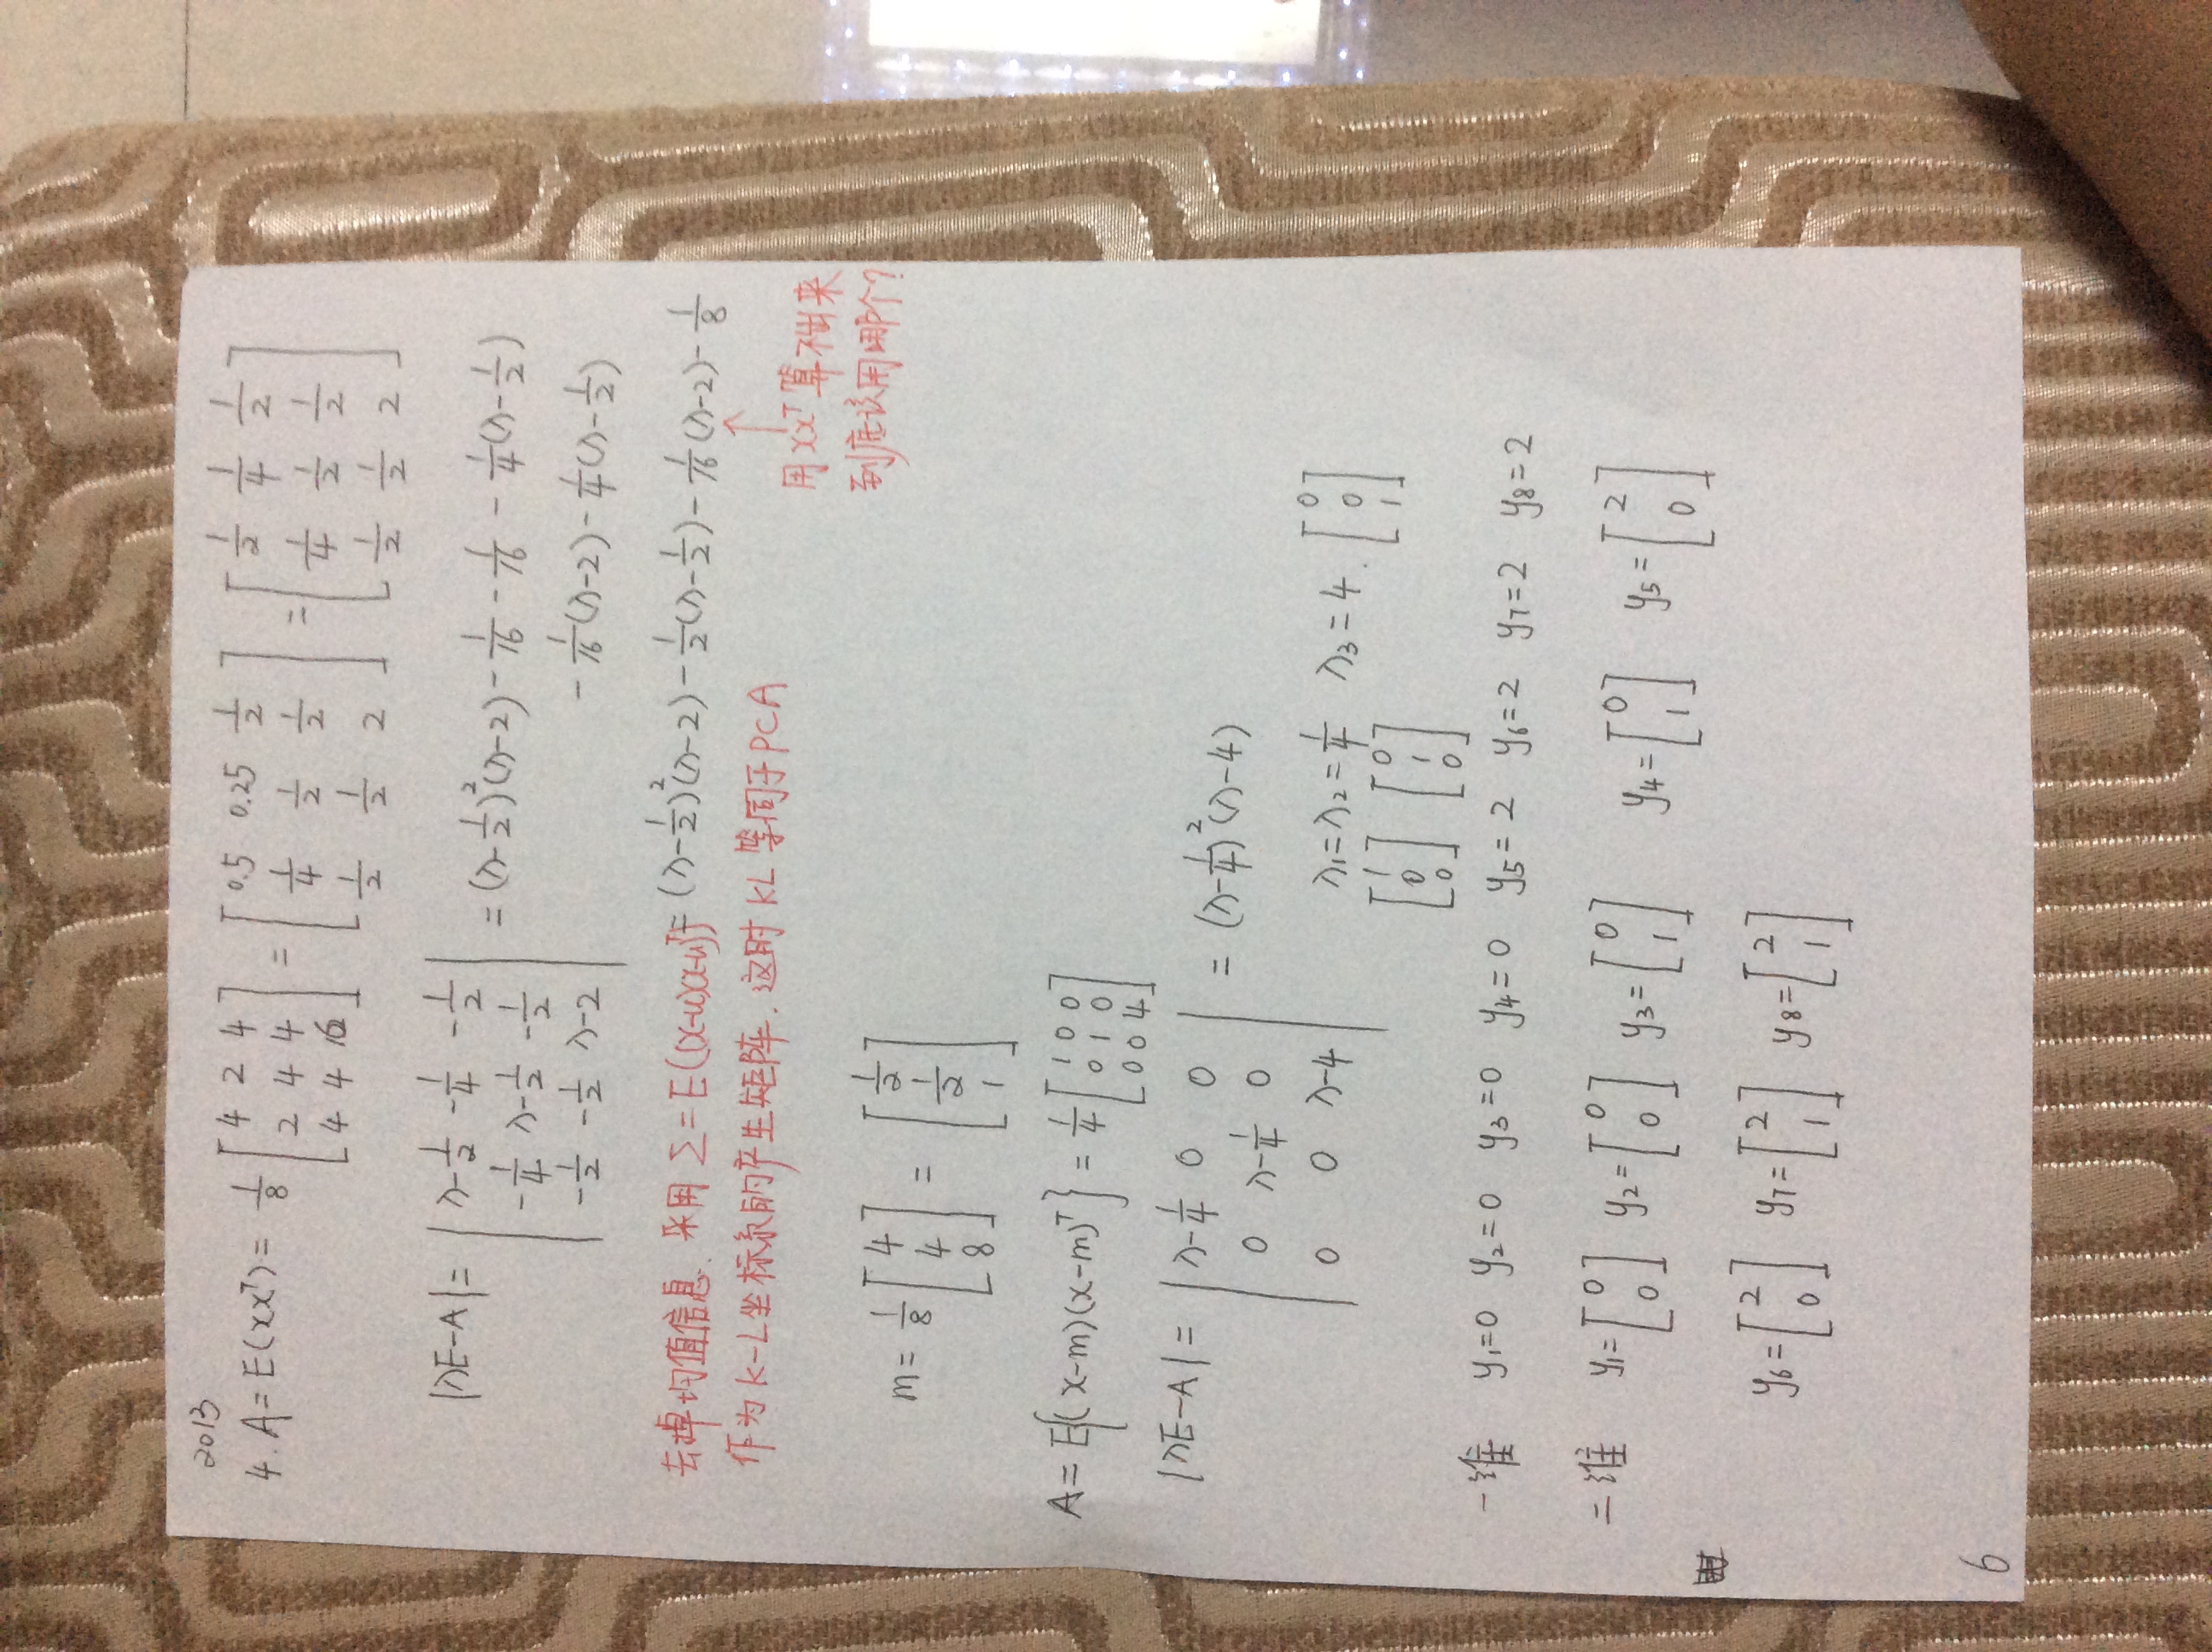 2013
4. A=E(xxᵀ)= 1/8 [4 2 4; 2 4 4; 4 4 16] = [0.5 0.25 1/2; 1/4 1/2 1/2; 1/2 1/2 2] = [1/2 1/4 1/2; 1/4 1/2 1/2; 1/2 1/2 2]
|λE-A|= |λ-1/2 -1/4 -1/2; -1/4 λ-1/2 -1/2; -1/2 -1/2 λ-2| = (λ-1/2)²(λ-2) - 1/16 - 1/16 - 1/4(λ-1/2)
- 1/16(λ-2) - 1/4(λ-1/2)
= (λ-1/2)²(λ-2) - 1/2(λ-1/2) - 1/16(λ-2) - 1/8
去掉均值信息. 采用 Σ=E((x-u)(x-u)ᵀ)
作为K-L坐标系的产生矩阵. 这时KL等同于PCA
↑
用xxᵀ算不出来
到底该用哪个?
m= 1/8 [4; 4; 8] = [1/2; 1/2; 1]
A=E{(x-m)(x-m)ᵀ} = 1/4 [1 0 0; 0 1 0; 0 0 4]
|λE-A|= |λ-1/4 0 0; 0 λ-1/4 0; 0 0 λ-4| = (λ-1/4)²(λ-4)
λ₁=λ₂=1/4 λ₃=4.
[1; 0; 0] [0; 1; 0] [0; 0; 1]
一维 y₁=0 y₂=0 y₃=0 y₄=0 y₅=2 y₆=2 y₇=2 y₈=2
二维 y₁=[0; 0] y₂=[0; 0] y₃=[0; 1] y₄=[0; 1] y₅=[2; 0]
y₆=[2; 0] y₇=[2; 1] y₈=[2; 1]
6